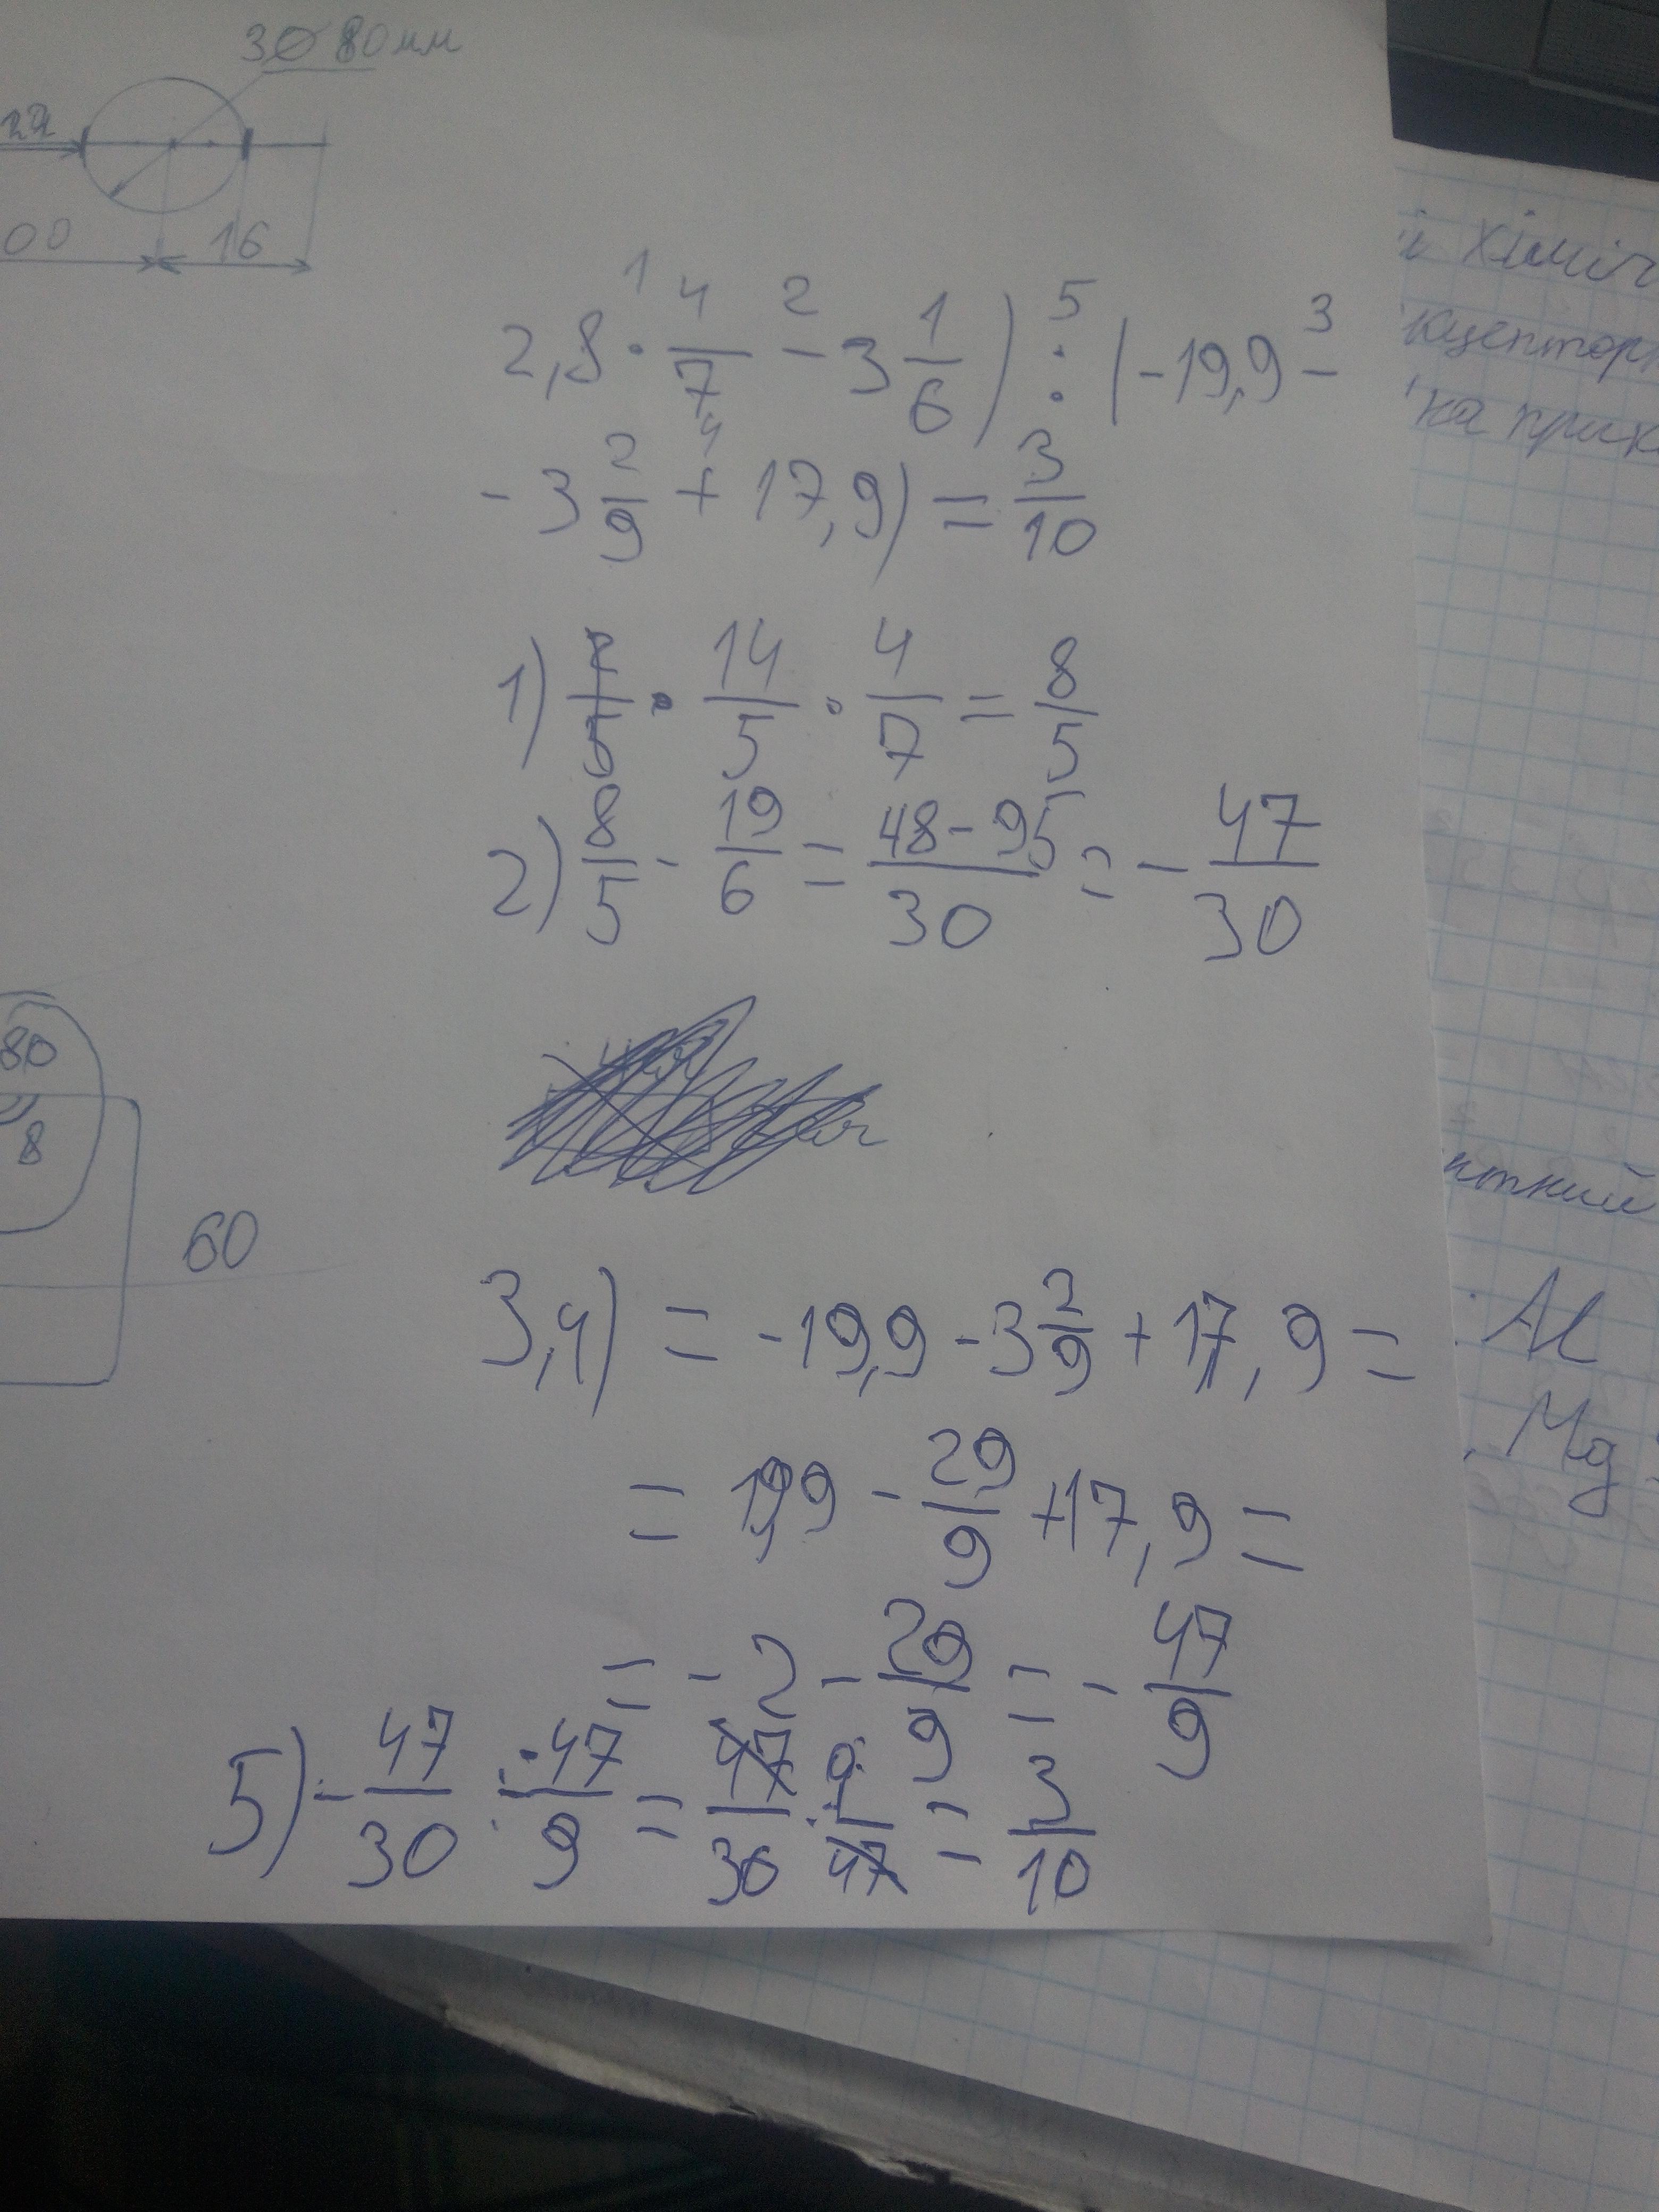 3⌀ 80мм
22
00 16
1 4 2 1 5 3
2,8 · 4/7 - 3 1/6) : (-19,9 -
4
- 3 2/9 + 17,9) = 3/10
1) 14/5 · 4/7 = 8/5
2) 8/5 - 19/6 = 48-95/30 = - 47/30
80
8
60
3,4) = -19,9 - 3 2/9 + 17,9 =
= 19,9 - 29/9 + 17,9 =
= -2 - 29/9 = - 47/9
5) - 47/30 : -47/9 = 47/30 · 9/47 = 3/10
хіміч
кцептор
на прик
тний
Al
Mg